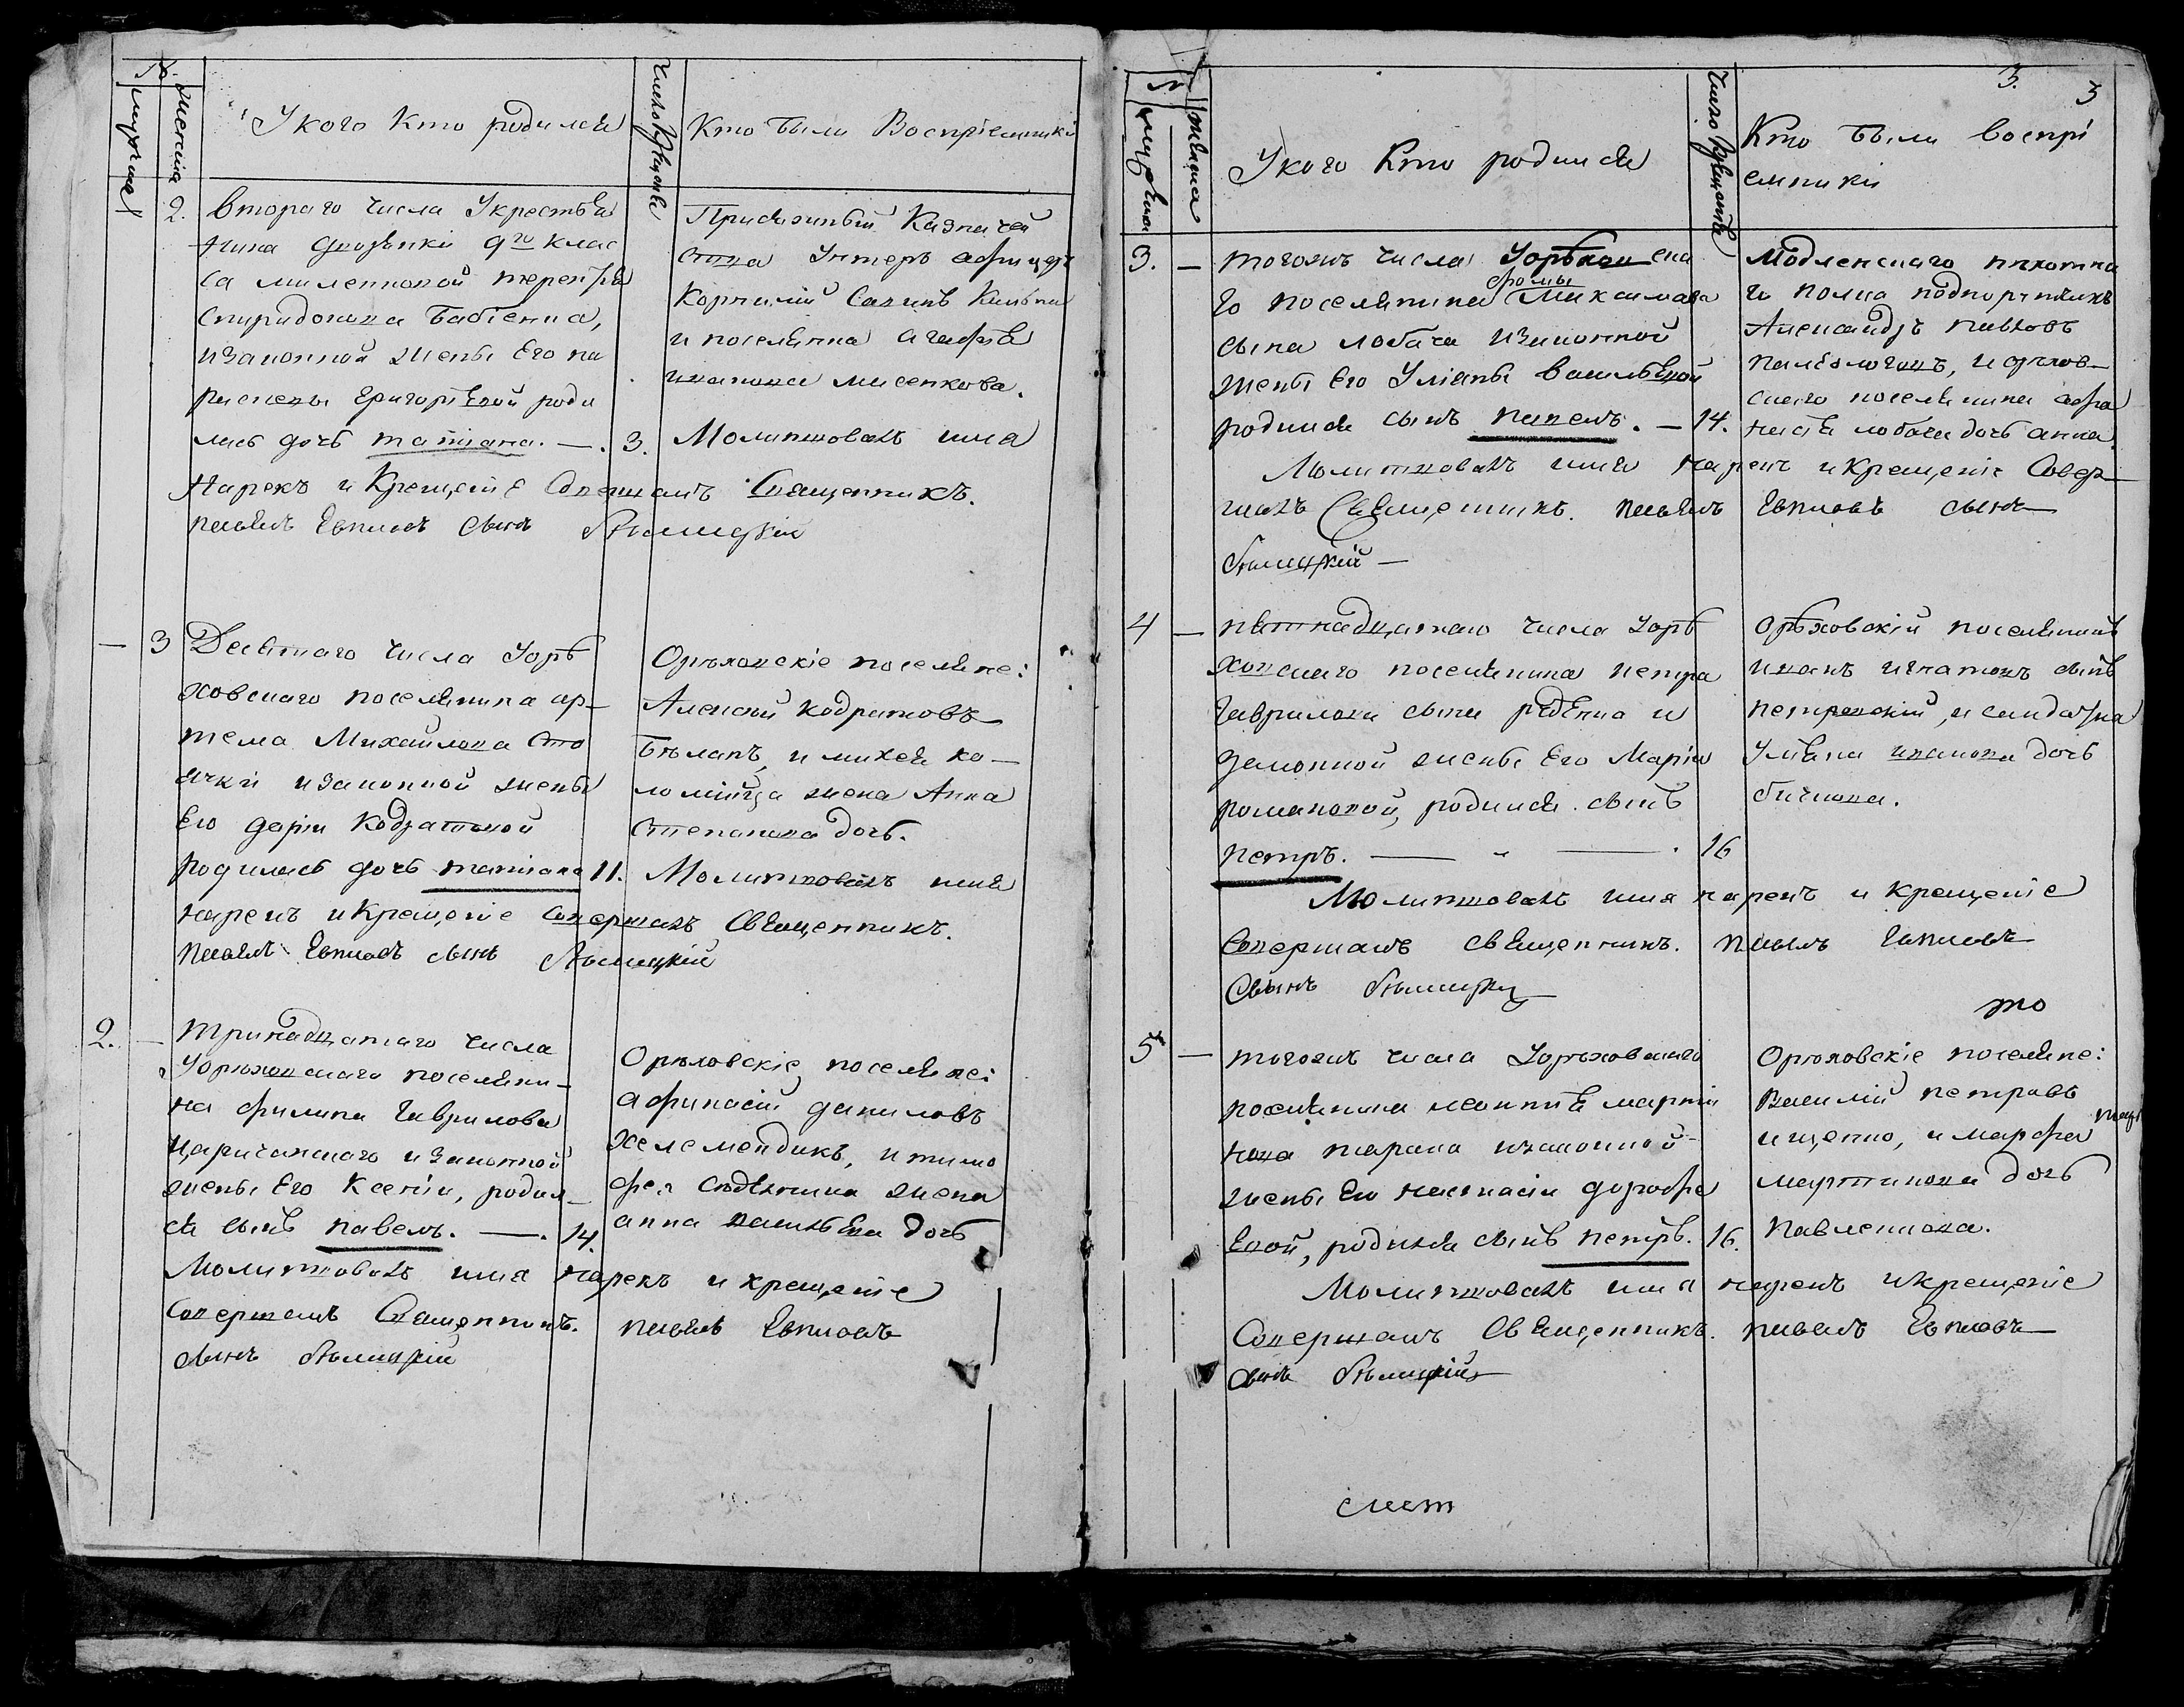 №
мужчина
женска
У кого кто родился
Число крещенія
Кто были Воспріемники
2. втораго числа Укрестья
нина
9го клас
са
Спиридонова Бабіенка,
изаконной жены его па
раскевы Григоріевой роди
лась дочь татіана. — . 3.
Присяжный Казначей
ства Унтеръ афицеръ
Корнилій Савинъ
и поселянка агафія
иванова мисенкова.
Молитвовалъ имя
Нарекъ и Крещеніе Совершалъ Священникъ.
павелъ Евпловъ сынъ
— 3 Девятаго числа Уорѣ
ховскаго поселянина ар-
тема Михайлова Сто
ячки изаконной жены
Его Даріи Кодратовой
родилась дочь татіана 11.
Орѣховскіе поселяне:
Алексей кодратовъ
бѣланъ, и михея ко-
ломійца жена Анна
степанова дочь.
Молитвовалъ имя
нарекъ и Крещеніе Совершалъ Священникъ.
павелъ Евпловъ сынъ
2. — тринадцатаго числа
Уорѣховскаго поселяни-
на филипа Гаврилова
царичанскаго изаконной
жены Его Ксеніи, родил-
ся сынъ павелъ. — . 14.
Орѣховскіе поселяне:
афанасій даниловъ
желемендикъ, и тимо
фея жена
анна васильева дочь
Молитвовалъ имя нарекъ и крещеніе
Совершалъ Священникъ. павелъ Евпловъ
сынъ
3. 3
№
мужчина
женска
У кого Кто родился
Число крещенія
Кто были воспрі
емники
3. — тогожъ числа Уорѣхов ска
фомы
го поселянина Максимова
сына лобача изаконной
жены Его Уліаны васильевой
родился сынъ павелъ. — 14.
Модленскаго пѣхотна
го полка подпорутчикъ
Александръ павловъ
палеологовъ, и орѣхов-
скаго поселянина афа
насія лобача дочь анна
Молитвовалъ имя нарекъ и Крещеніе Совер-
шалъ Священникъ. павелъ Евпловъ сынъ
4 — пятнадцатаго числа Уорѣ
ховскаго поселянина петра
Гаврилова сына рябенка и
законной жены Его Маріи
романовой, родился сынъ
петръ. — " — . 16
Орѣховскій поселянинъ
иванъ игнатовъ сынъ
петревскій, и солдатка
Уліяна иванова дочь
бичкова.
Молитвовалъ имя нарекъ и Крещеніе
Совершалъ священникъ. павелъ Евпловъ
Сынъ
то
5 — тогожъ числа Уорѣховскаго
поселянина леонтія марти
нова тарана изаконной
жены Его настасіи дорофе
евой, родился сынъ петръ. 16.
Орѣховскіе поселяне:
Василій петровъ
ищенко, и марфа
мартинова дочь
павленкова.
Молитвовалъ имя нарекъ и крещеніе
Совершалъ Священникъ. павелъ Евпловъ
сынъ